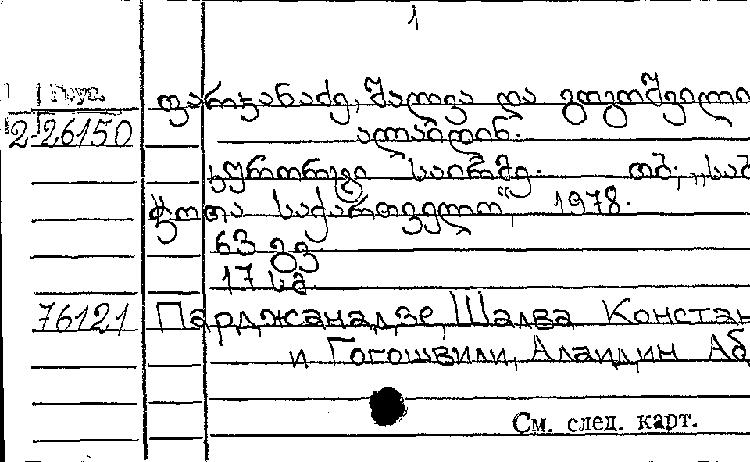 1
Груз.
2 26150
ფარჯანაძე, შალვა და გოგოშვილი
ალაიდინ.
კურორტი საირმე. თბ., „საბ
ჭოთა საქართველო“, 1978.
63 გვ.
17 სმ.
76121 Парджанадзе, Шалва Констан
и Гогошвили, Алаидин Аб
См. след. карт.